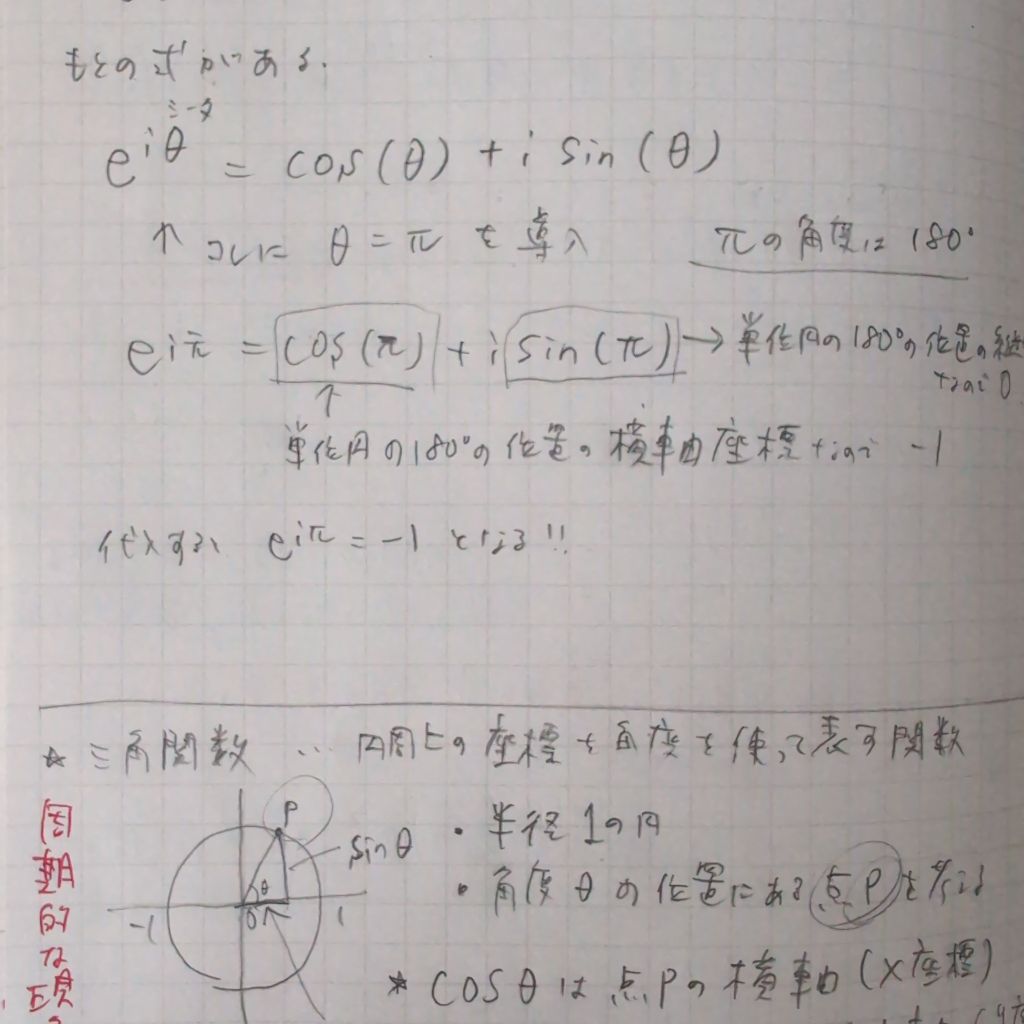 もとの式がある.
シータ
e^{iθ} = cos(θ) + i sin(θ)
↑ コレに θ=π を導入 πの角度は180°
e^{iπ} = cos(π) + i sin(π) → 単位円の180°の位置の縦
なので 0
↑
単位円の180°の位置の横軸座標なので -1
代入すると e^{iπ} = -1 となる!!
☆ 三角関数 … 円周上の座標を角度を使って表す関数
P
sinθ
θ
0
-1
1
・半径1の円
・角度θの位置にある点Pを考える
* cosθは点Pの横軸(x座標)
周期的な現